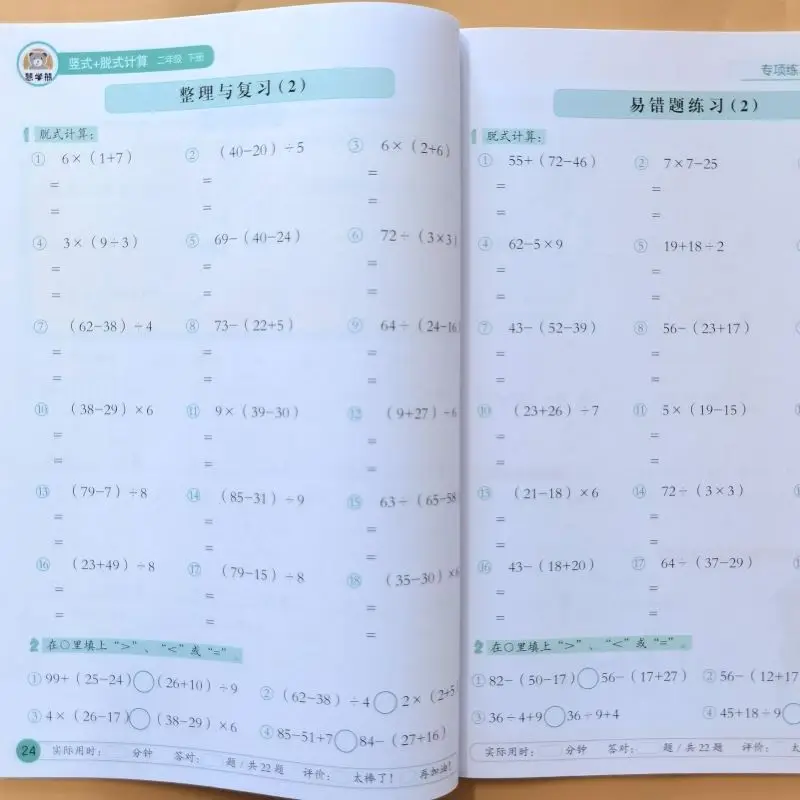 慧学熊
竖式+脱式计算 二年级 下册
整理与复习(2)
1 脱式计算:
① 6×(1+7) ② (40-20)÷5 ③ 6×(2+6)
= = =
= = =
④ 3×(9÷3) ⑤ 69-(40-24) ⑥ 72÷(3×3)
= = =
= = =
⑦ (62-38)÷4 ⑧ 73-(22+5) ⑨ 64÷(24-16
= = =
= = =
⑩ (38-29)×6 ⑪ 9×(39-30) ⑫ (9+27)÷6
= = =
= = =
⑬ (79-7)÷8 ⑭ (85-31)÷9 ⑮ 63÷(65-58
= = =
= = =
⑯ (23+49)÷8 ⑰ (79-15)÷8 ⑱ (35-30)×6
= = =
= = =
2 在○里填上“>”、“<”或“=”。
①99+(25-24)○(26+10)÷9 ②(62-38)÷4○2×(2+5
③4×(26-17)○(38-29)×6 ④85-51+7○84-(27+16)
24 实际用时: 分钟 答对: 题/共22题 评价: 太棒了! 再加油!
专项练
易错题练习(2)
1 脱式计算:
① 55+(72-46) ② 7×7-25
= =
= =
④ 62-5×9 ⑤ 19+18÷2
= =
= =
⑦ 43-(52-39) ⑧ 56-(23+17)
= =
= =
⑩ (23+26)÷7 ⑪ 5×(19-15)
= =
= =
⑬ (21-18)×6 ⑭ 72÷(3×3)
= =
= =
⑯ 43-(18+20) ⑰ 64÷(37-29)
= =
= =
2 在○里填上“>”、“<”或“=”。
①82-(50-17)○56-(17+27) ②56-(12+17
③36÷4+9○36÷9+4 ④45+18÷9○
实际用时: 分钟 答对: 题/共22题 评价: 太